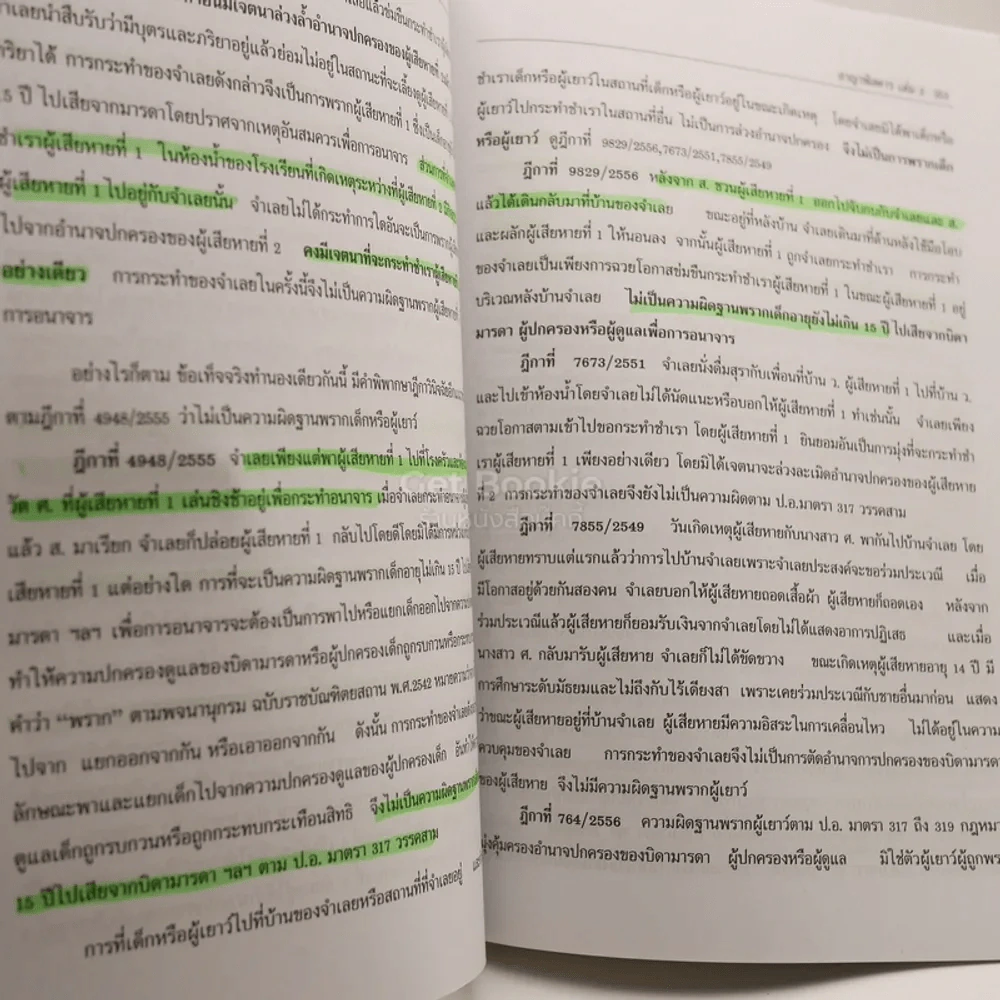 ของผู้เสียหายที่
จำเลยนำสืบรับว่ามีบุตรและภริยาอยู่แล้วย่อมไม่อยู่ในสถานะที่จะเลี้ยงดูผู้เสียหายที่
ภริยาได้ การกระทำของจำเลยดังกล่าวจึงเป็นการพรากผู้เสียหายที่ 1 ซึ่งเป็นเด็กอายุ
15 ปี ไปเสียจากมารดาโดยปราศจากเหตุอันสมควรเพื่อการอนาจาร
ชำเราผู้เสียหายที่ 1 ในห้องน้ำของโรงเรียนที่เกิดเหตุระหว่างที่ผู้เสียหายที่
ผู้เสียหายที่ 1 ไปอยู่กับจำเลยนั้น จำเลยไม่ได้กระทำการใดอันจะเป็นการพรากผู้
ไปจากอำนาจปกครองของผู้เสียหายที่ 2 คงมีเจตนาที่จะกระทำชำเราผู้เสียหายที่
อย่างเดียว การกระทำของจำเลยในครั้งนี้จึงไม่เป็นความผิดฐานพรากผู้เสียหายที่
การอนาจาร
อย่างไรก็ตาม ข้อเท็จจริงทำนองเดียวกันนี้ มีคำพิพากษาฎีกาวินิจฉัย
ตามฎีกาที่ 4948/2555 ว่าไม่เป็นความผิดฐานพรากเด็กหรือผู้เยาว์
ฎีกาที่ 4948/2555 จำเลยเพียงแต่พาผู้เสียหายที่ 1 ไปที่โรงครัว
วัด ศ. ที่ผู้เสียหายที่ 1 เล่นชิงช้าอยู่เพื่อกระทำอนาจาร เมื่อจำเลยกระทำอนาจาร
แล้ว ส. มาเรียก จำเลยก็ปล่อยผู้เสียหายที่ 1 กลับไปโดยดีโดยมิได้มีการ
เสียหายที่ 1 แต่อย่างใด การที่จะเป็นความผิดฐานพรากเด็กอายุไม่เกิน 15 ปี
มารดา ฯลฯ เพื่อการอนาจารจะต้องเป็นการพาไปหรือแยกเด็กออกไปจาก
ทำให้ความปกครองดูแลของบิดามารดาหรือผู้ปกครองเด็กถูกรบกวนหรือ
คำว่า “พราก” ตามพจนานุกรม ฉบับราชบัณฑิตยสถาน พ.ศ.2542 หมายความว่า
ไปจาก แยกออกจากกัน หรือเอาออกจากกัน ดังนั้น การกระทำของจำเลย
ลักษณะพาและแยกเด็กไปจากความปกครองดูแลของผู้ปกครองเด็ก
ดูแลเด็กถูกรบกวนหรือถูกกระทบกระเทือนสิทธิ จึงไม่เป็นความผิดฐานพราก
15 ปีไปเสียจากบิดามารดา ฯลฯ ตาม ป.อ. มาตรา 317 วรรคสาม
การที่เด็กหรือผู้เยาว์ไปที่บ้านของจำเลยหรือสถานที่ที่จำเลยอยู่
ชำเราเด็กหรือผู้เยาว์ในสถานที่เด็กหรือผู้เยาว์อยู่ในขณะเกิดเหตุ โดยจำเลยมิได้พาเด็กหรือ
ผู้เยาว์ไปกระทำชำเราในสถานที่อื่น ไม่เป็นการล่วงอำนาจปกครอง จึงไม่เป็นการพรากเด็ก
หรือผู้เยาว์ ดูฎีกาที่ 9829/2556,7673/2551,7855/2549
ฎีกาที่ 9829/2556 หลังจาก ส. ชวนผู้เสียหายที่ 1 ออกไปจับกบกับจำเลยและ ส.
แล้วได้เดินกลับมาที่บ้านของจำเลย ขณะอยู่ที่หลังบ้าน จำเลยเดินมาที่ด้านหลังใช้มือโอบ
และผลักผู้เสียหายที่ 1 ให้นอนลง จากนั้นผู้เสียหายที่ 1 ถูกจำเลยกระทำชำเรา การกระทำ
ของจำเลยเป็นเพียงการฉวยโอกาสข่มขืนกระทำชำเราผู้เสียหายที่ 1 ในขณะผู้เสียหายที่ 1 อยู่
บริเวณหลังบ้านจำเลย ไม่เป็นความผิดฐานพรากเด็กอายุยังไม่เกิน 15 ปี ไปเสียจากบิดา
มารดา ผู้ปกครองหรือผู้ดูแลเพื่อการอนาจาร
ฎีกาที่ 7673/2551 จำเลยนั่งดื่มสุรากับเพื่อนที่บ้าน ว. ผู้เสียหายที่ 1 ไปที่บ้าน ว.
และไปเข้าห้องน้ำโดยจำเลยไม่ได้นัดแนะหรือบอกให้ผู้เสียหายที่ 1 ทำเช่นนั้น จำเลยเพียง
ฉวยโอกาสตามเข้าไปขอกระทำชำเรา โดยผู้เสียหายที่ 1 ยินยอมอันเป็นการมุ่งที่จะกระทำชำ
เราผู้เสียหายที่ 1 เพียงอย่างเดียว โดยมิได้เจตนาจะล่วงละเมิดอำนาจปกครองของผู้เสียหาย
ที่ 2 การกระทำของจำเลยจึงยังไม่เป็นความผิดตาม ป.อ.มาตรา 317 วรรคสาม
Get Bookie
ร้านหนังสือบุ๊คกี้
ฎีกาที่ 7855/2549 วันเกิดเหตุผู้เสียหายกับนางสาว ศ. พากันไปบ้านจำเลย โดย
ผู้เสียหายทราบแต่แรกแล้วว่าการไปบ้านจำเลยเพราะจำเลยประสงค์จะขอร่วมประเวณี เมื่อ
มีโอกาสอยู่ด้วยกันสองคน จำเลยบอกให้ผู้เสียหายถอดเสื้อผ้า ผู้เสียหายก็ถอดเอง หลังจาก
ร่วมประเวณีแล้วผู้เสียหายก็ยอมรับเงินจากจำเลยโดยไม่ได้แสดงอาการปฏิเสธ และเมื่อ
นางสาว ศ. กลับมารับผู้เสียหาย จำเลยก็ไม่ได้ขัดขวาง ขณะเกิดเหตุผู้เสียหายอายุ 14 ปี มี
การศึกษาระดับมัธยมและไม่ถึงกับไร้เดียงสา เพราะเคยร่วมประเวณีกับชายอื่นมาก่อน แสดง
ว่าขณะผู้เสียหายอยู่ที่บ้านจำเลย ผู้เสียหายมีความอิสระในการเคลื่อนไหว ไม่ได้อยู่ในความ
ควบคุมของจำเลย การกระทำของจำเลยจึงไม่เป็นการตัดอำนาจการปกครองของบิดามารดา
ของผู้เสียหาย จึงไม่มีความผิดฐานพรากผู้เยาว์
ฎีกาที่ 764/2556 ความผิดฐานพรากผู้เยาว์ตาม ป.อ. มาตรา 317 ถึง 319 กฎหมา
มุ่งคุ้มครองอำนาจปกครองของบิดามารดา ผู้ปกครองหรือผู้ดูแล มิใช่ตัวผู้เยาว์ผู้ถูกพร